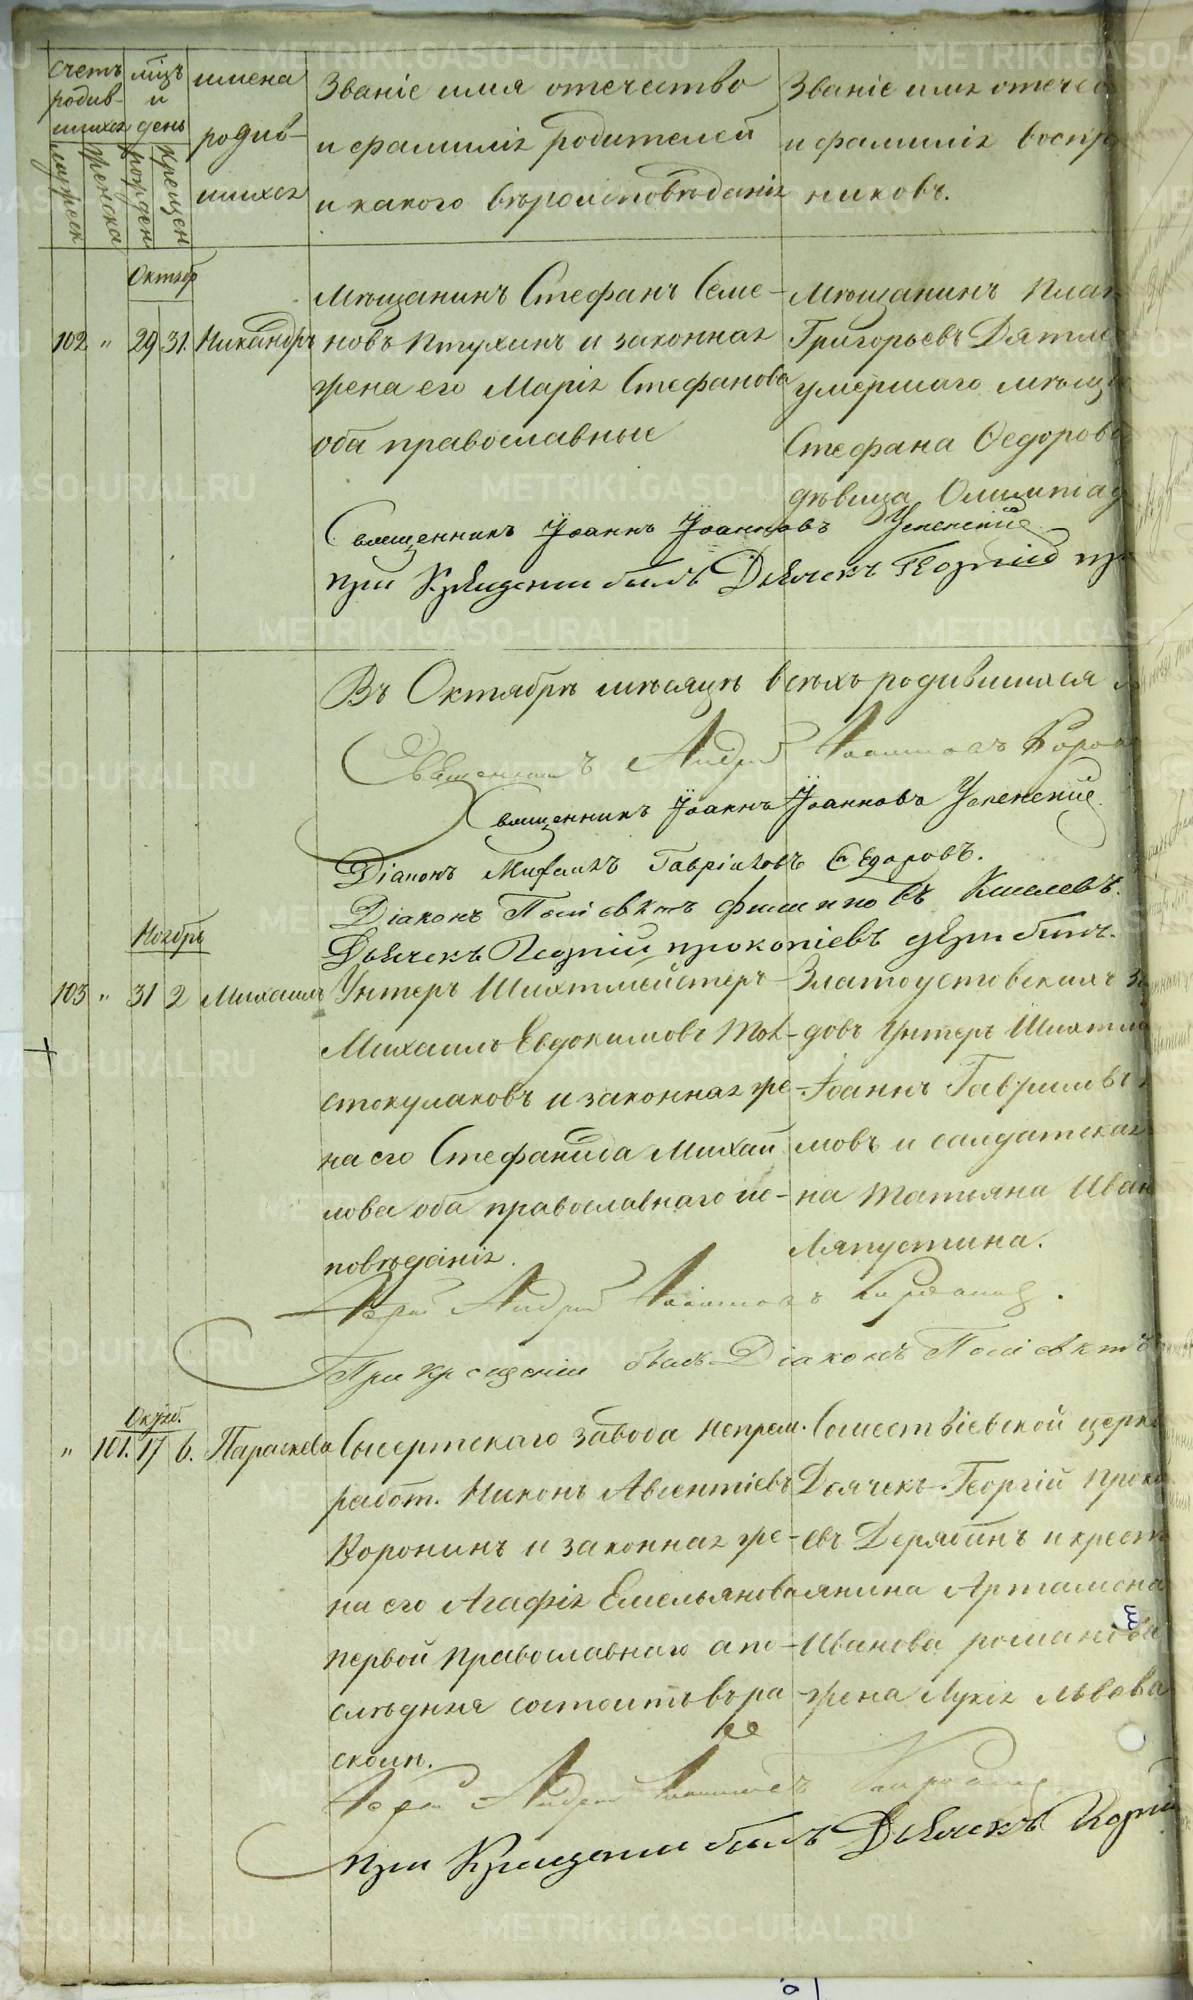 Счетъ родив-шихся
мѣзъ и день
имена родив-шихся
Званіе имя отечество
и фамилія родителей
и какого вѣроисповѣданія
Званіе имя отечес
и фамилія воспр
никовъ.
мужеск женска рожден крещен
Октябр
102 " 29 31. Никандръ
Мѣщанинъ Стефанъ Семе-
новъ Птухинъ и законная
жена его Марія Стефанова
оба православные
Мѣщанинъ Плат
Григорьевъ Дятл
умершаго мѣщ
Стефана Ѳедоров
дѣвица Олимпіад
Священникъ Іоаннъ Іоанновъ Успенскій
при Крещеніи былъ Дьячекъ Георгій пр
Въ Октябрѣ мѣсяцѣ всѣхъ родившихся
Священникъ Андрей
Священникъ Іоаннъ Іоанновъ Успенскій
Діаконъ Михаилъ Гавріиловъ Ѳедоровъ.
Діаконъ Поліевктъ Филипповъ Киселевъ.
Дьячекъ Георгій прокопіевъ дерябинъ.
Ноябрь
103 " 31 2 Михаилъ
Унтеръ Шихтмейстеръ
Михаилъ Евдокимовъ Тол-
стокулаковъ и законная же-
на его Стефанида Михай
лова оба православнаго ис-
повѣданія.
Златоустовскихъ за
довъ Унтеръ Шихтме
Іоаннъ Гавриловъ
мовъ и солдатская
на Татіяна Иван
Ляпустина.
Іерей Андрей
При крещеніи былъ Діаконъ Поліевктъ
Октяб.
" 101. 17 6. Параскева
Сысертскаго завода непрем.
работ. Никонъ Авксентіевъ
Воронинъ и законная же-
на его Агафія Емельянова
первой Православнаго а по-
слѣдняя состоитъ въ ра-
сколѣ.
Сошествіевской церкв
Дьячекъ Георгій Проко
евъ Дерябинъ и крест
янина Артамона
Иванова романова
жена Лукія Львова
Іерей Андрей
при Крещеніи былъ Дьячекъ Георгій
METRIKI.GASO-URAL.RU